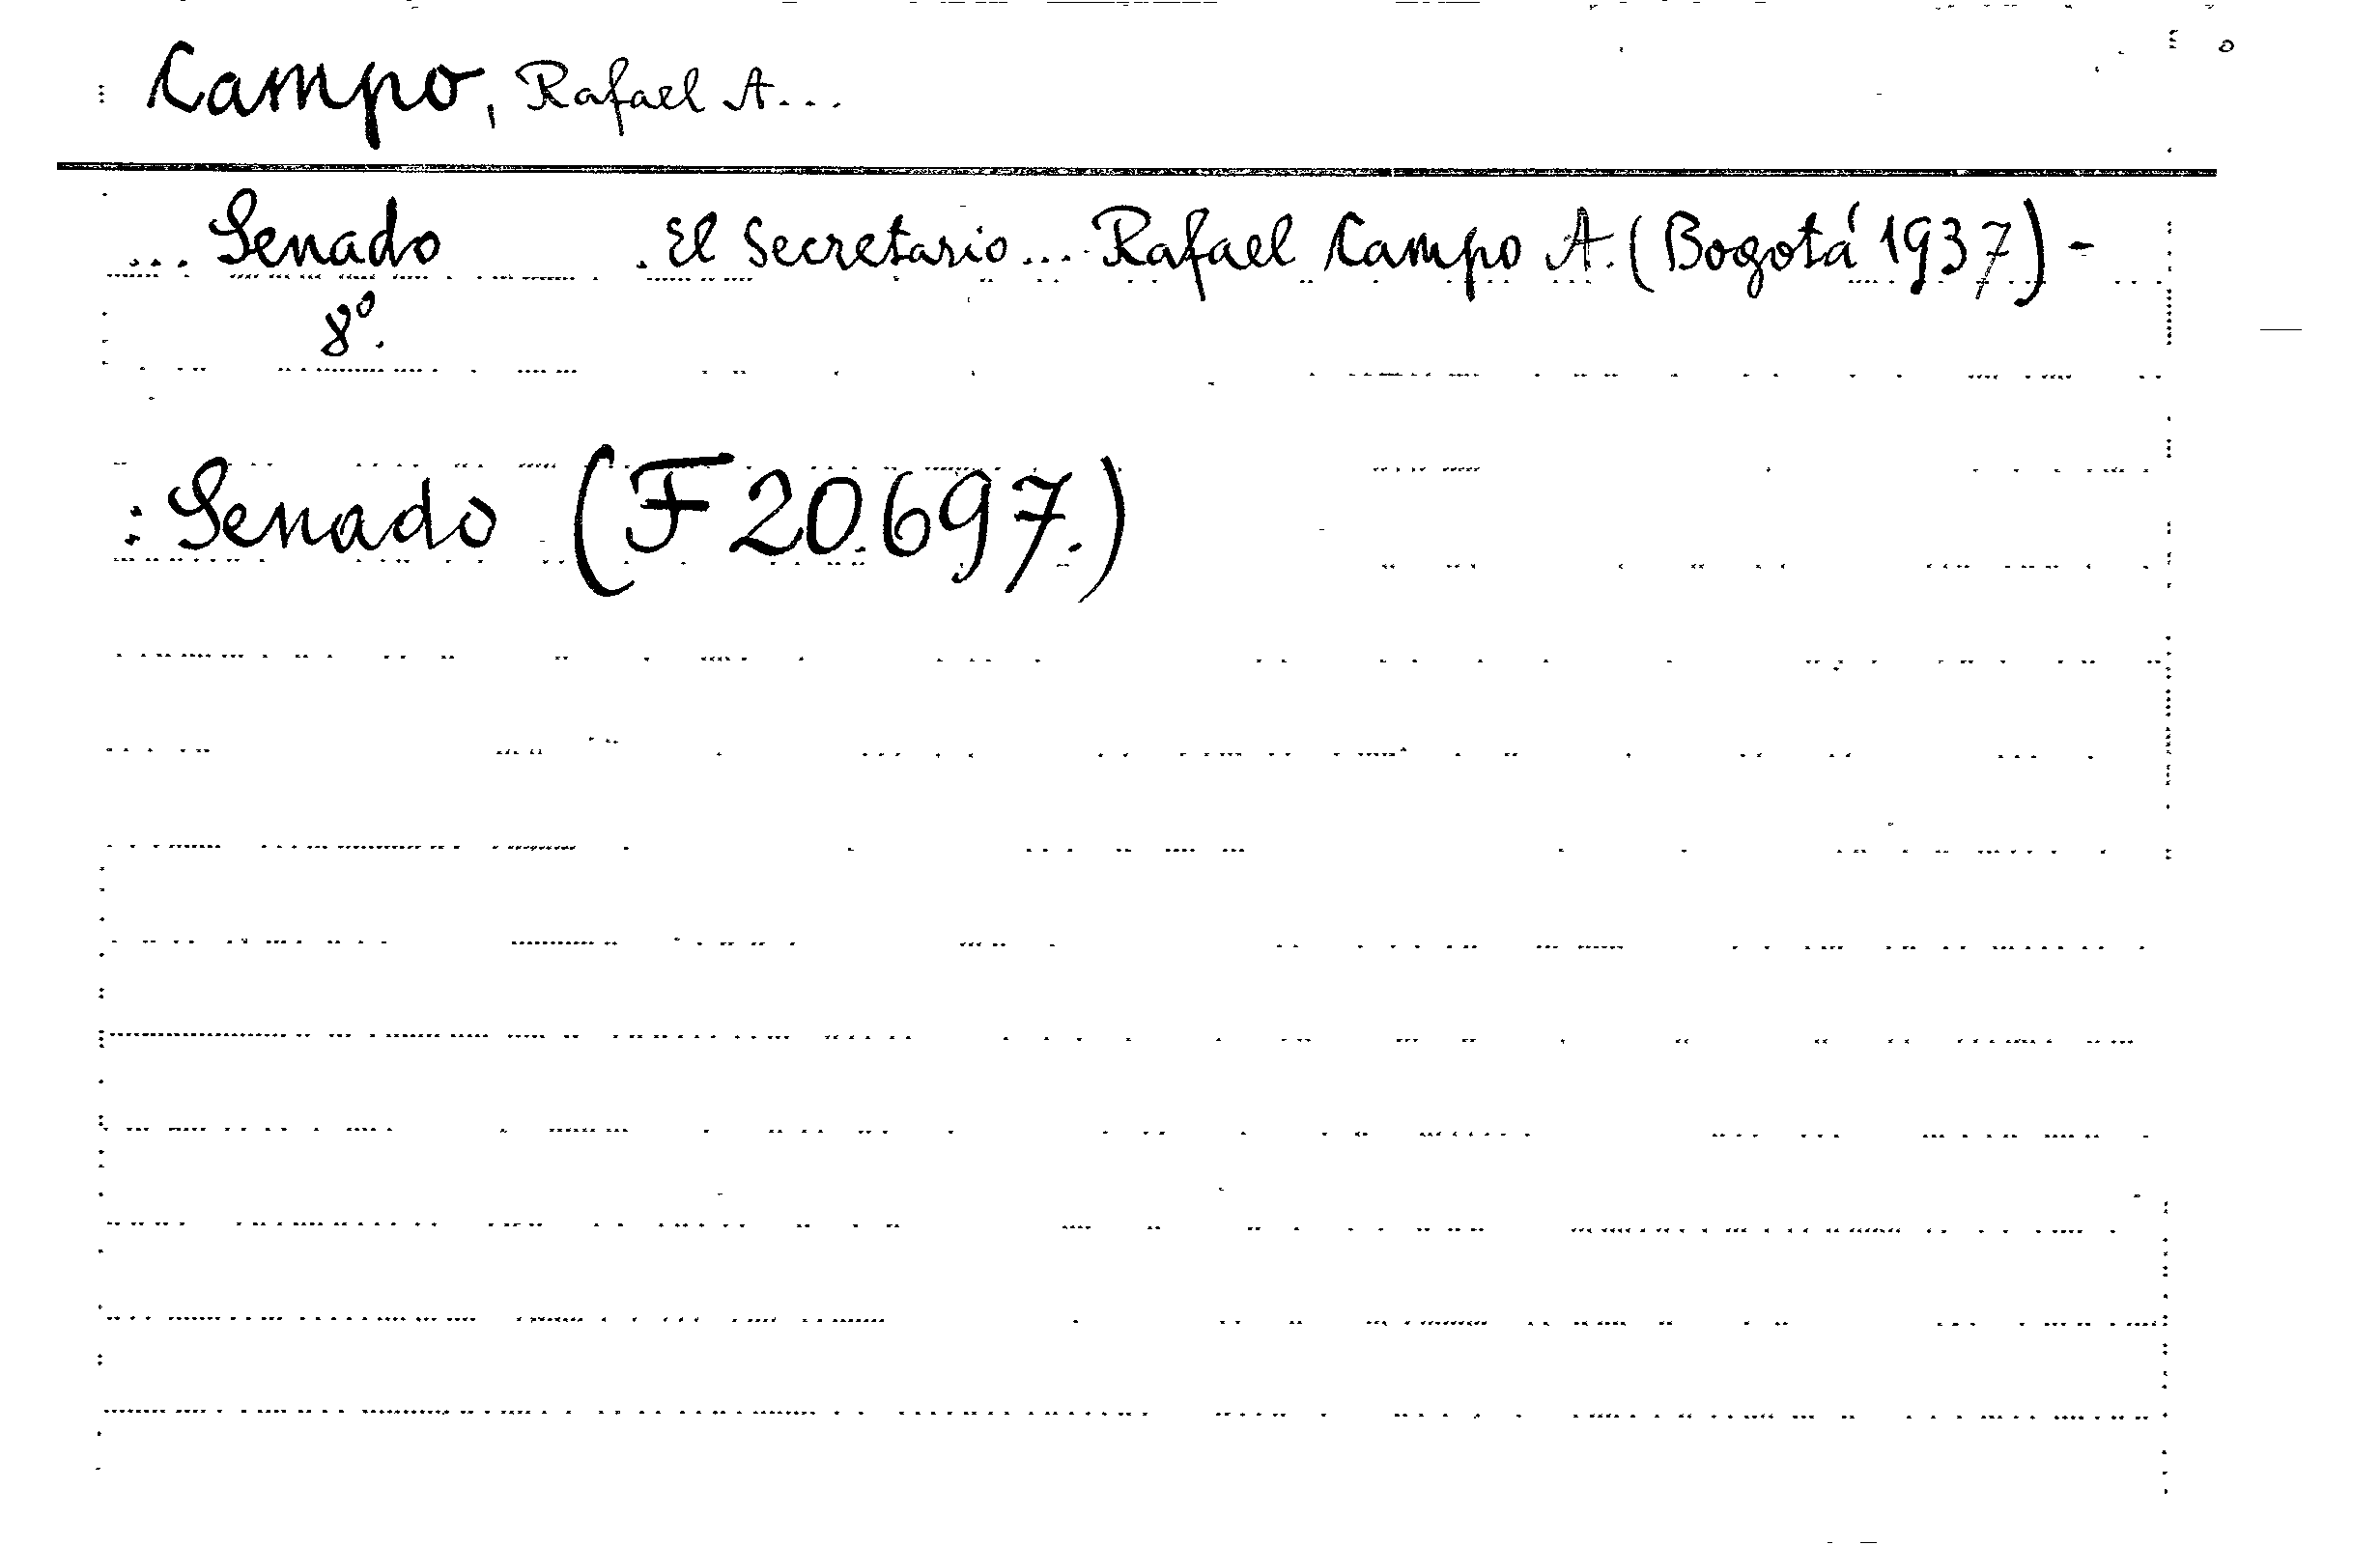 Campo, Rafael A...
... Senado . El Secretario... Rafael Campo A. (Bogotá 1937) -
8º.
: Senado (F 20.697.)